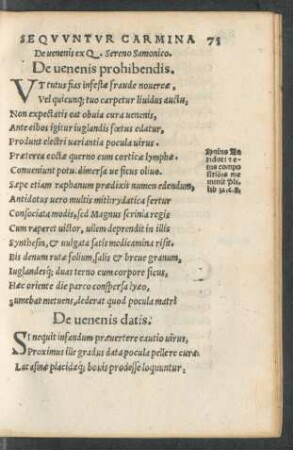 SEQVVNTVR CARMINA 73
De uenenis ex Q. Sereno Samonico.
De uenenis prohibendis.
VT tutus fias infestæ fraude nouercæ,
Vel quicunq; tuo carpetur liuidus auctu,
Non expectatis eat obuia cura uenenis,
Ante cibos igitur iuglandis sextus edatur,
Produnt electri uariantia pocula uirus.
Præterea coctæ querno cum cortice lymphæ
Conueniunt potu. dimersa ue ficus oliuo.
Sæpe etiam raphanum prædixit numen edendum,
Antidotus uero multis mithrydatica fertur
Consociata modis, sed Magnus scrinia regis
Cum raperet uictor, uilem deprendit in illis
Synthesin, & uulgata satis medicamina risit.
Bis denum rutæ folium, salis & breue granum,
Iuglandesq; duas terno cum corpore ficus,
Hæc oriente die parco conspersa lyæo,
Sumebat metuens, dederat quod pocula matri
De uenenis datis.
SI nequit infandum præuertere cautio uirus,
Proximus ille gradus data pocula pellere cura
Lac asinæ placidæq; bouis prodesse loquuntur,